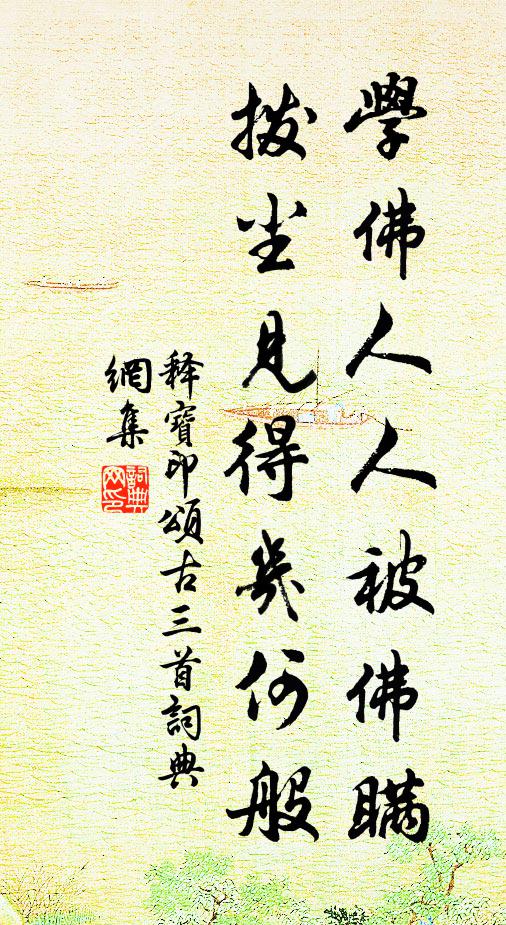 學佛人人被佛瞞
撥塵見得幾何般
释寶印頌古三首詞典
網集
詞典網印